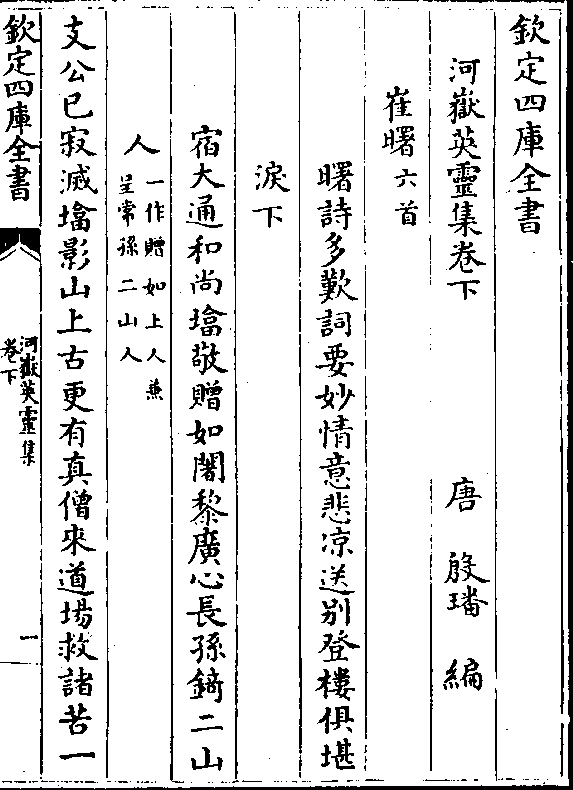 欽定四庫全書
河嶽英靈集卷下
唐 殷璠 編
崔曙六首
曙詩多歎詞要妙情意悲凉送别登樓俱堪
淚下
宿大通和尚墖敬贈如闍黎廣心長孫錡二山
人一作贈如上人兼
呈常孫二山人
支公已寂滅墖影山上古更有真僧來道場救諸苦一
欽定四庫全書
河嶽英靈集
卷下
一